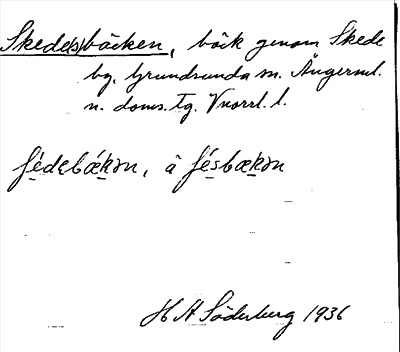 Skede(s)bäcken, bäck genom Skede
by, Grundsunda sn. Ångerml.
n. doms. tg. Vnorrl. l.
ʃédebǽkən, å ʃésbækən
H A Söderberg 1936